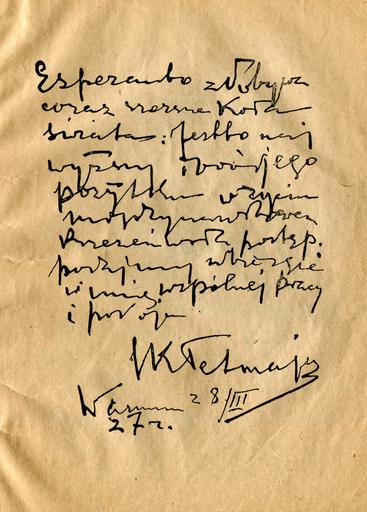 Esperanto zdobywa
coraz szersze koła
świata. Jest to naj
wyższy dowód jego
pożytku w życiu
międzynarodowem
postęp.
w imię wspólnej pracy
i pokoju
K Tetmajer
Warszawa 28/III
27 r.